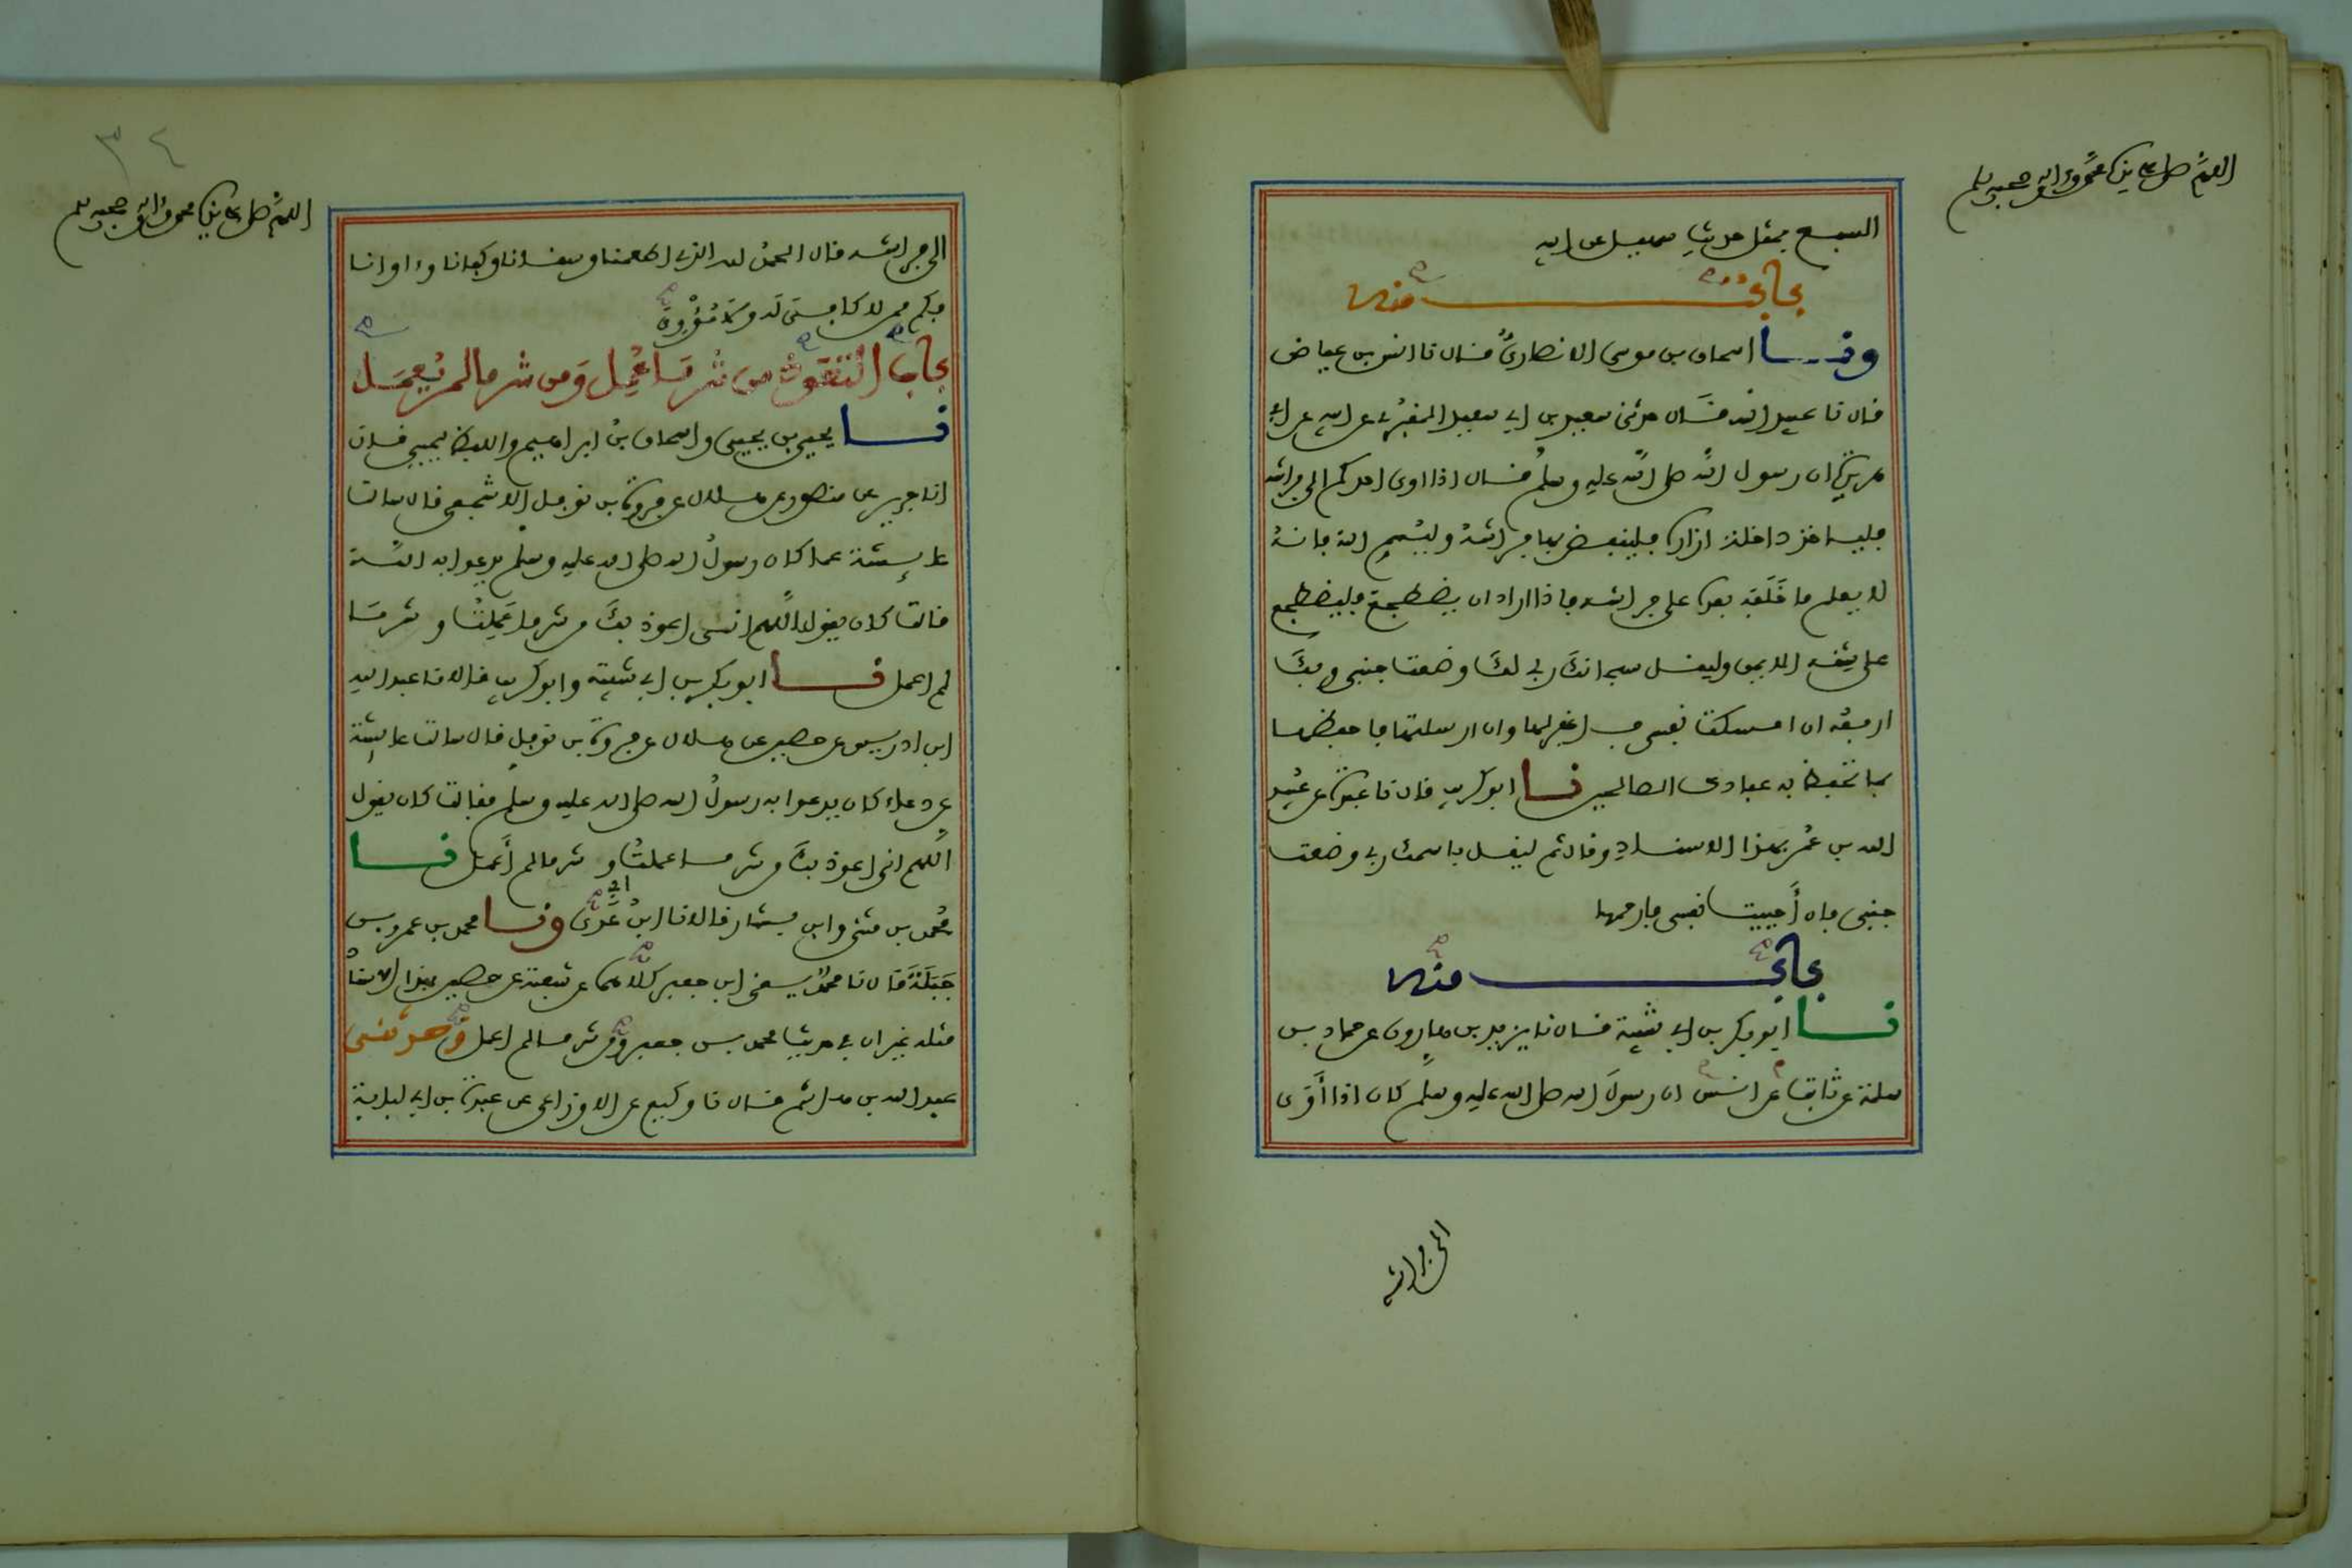 اللهم صل على سيدنا محمد وءاله وصحبه وسلم
السبع بمثل حديث سهيل عن ابيه
باب منه
ونا اسحاق بن موسى الانصاري قال نا انس بن عياض
قال نا عبيد الله قال حدثني سعيد بن ابي سعيد المقبري عن ابيه عن ابي
هريرة ان رسول الله صلى الله عليه وسلم قال اذا اوى احدكم الى فراشه
فلياخذ داخلة ازاره فلينفض بها فراشه وليسم الله فانه
لا يعلم ما خلفه بعده على فراشه فاذا اراد ان يضطجع فليضطجع
على شقه الايمن وليقل سبحانك ربي لك وضعت جنبي وبك
ارفعه ان امسكت نفسي فاغفر لها وان ارسلتها فاحفظها
بما تحفظ به عبادك الصالحين نا ابو كريب قال نا عبدة عن عبيد
الله بن عمر بهذا الاسناد وقال ثم ليقل باسمك ربي وضعت
جنبي فان أحييت نفسي فارحمها
باب منه
نا ابو بكر بن ابي شيبة قال نا يزيد بن هارون عن حماد بن
سلمة عن ثابت عن انس ان رسول الله صلى الله عليه وسلم كان اذا أوى
الى فراشه
٣٤
اللهم صل على سيدنا محمد وءاله وصحبه وسلم
الى فراشه قال الحمد لله الذي اطعمنا وسقانا وكفانا وءاوانا
فكم ممن لا كافي له ولا مؤوي
باب التعوذ من شر ما عمل ومن شر ما لم يعمل
نا يحيى بن يحيى واسحاق بن ابراهيم واللفظ ليحيى قالا
انا جرير عن منصور عن هلال عن فروة بن نوفل الاشجعي قال سالت
عايشة عما كان رسول الله صلى الله عليه وسلم يدعوا به الله
قالت كان يقول اللهم اني اعوذ بك من شر ما عملت وشر ما
لم اعمل نا ابو بكر بن ابي شيبة وابو كريب قالا نا عبد الله
ابن ادريس عن حصين عن هلال عن فروة بن نوفل قال سالت عايشة
عن دعاء كان يدعوا به رسول الله صلى الله عليه وسلم فقالت كان يقول
اللهم اني اعوذ بك من شر ما عملت وشر ما لم أعمل نا
محمد بن مثنى وابن بشار قالا نا ابن ابي عدي ونا محمد بن عمرو بن
جبلة قال نا محمد يعني ابن جعفر كلاهما عن شعبة عن حصين بهذا الاسناد
مثله غير ان في حديث محمد بن جعفر ومن شر ما لم اعمل وحدثني
عبد الله بن هاشم قال نا وكيع عن الاوزاعي عن عبدة بن ابي لبابة